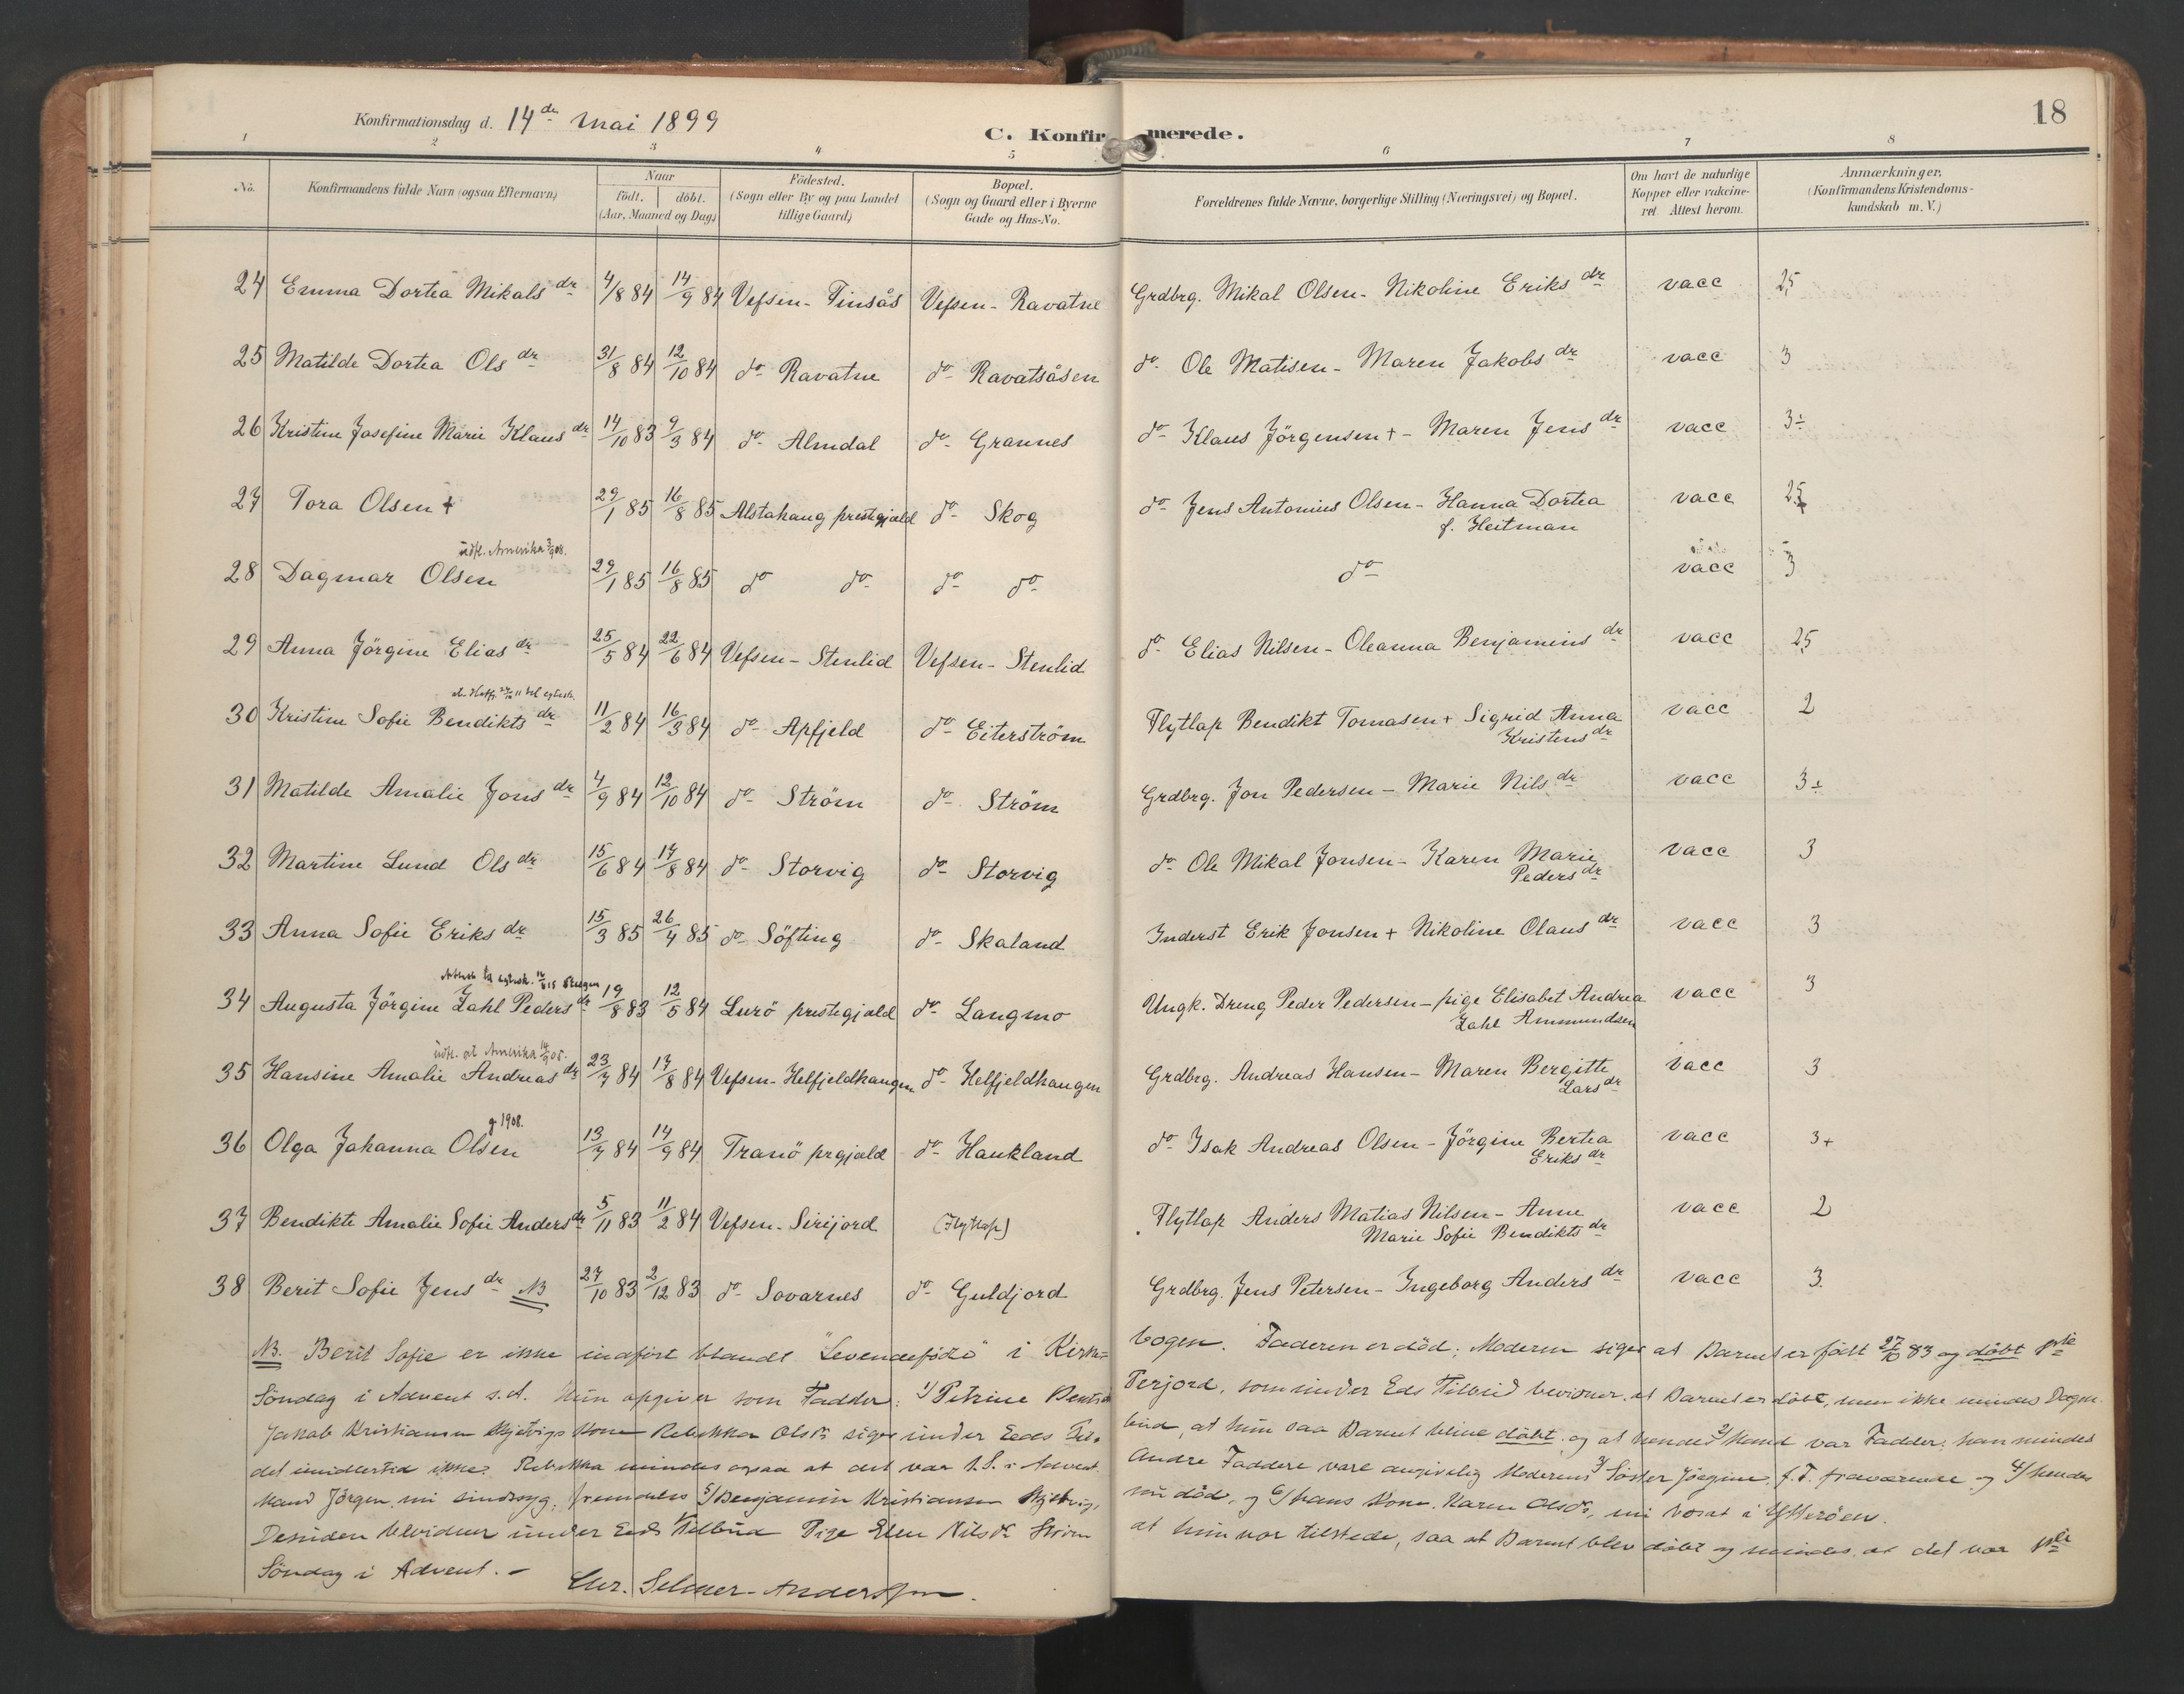 18
Konfirmationsdag d. 14de Mai 1899
C. Konfirmerede.
1 2 3 4 5 6 7 8
No. Konfirmandens fulde Navn (ogsaa Efternavn) Naar födt. döbt. (Aar, Maaned og Dag) Födested. (Sogn eller By og paa Landet tillige Gaard) Bopæl. (Sogn og Gaard eller i Byerne Gade og Hus-No. Forældrenes fulde Navne, borgerlige Stilling (Næringsvei) og Bopæl. Om havt de naturlige Kopper eller vakcineret Attest herom. Anmærkninger. (Konfirmandens Kristendomskundskab m. V.)
24 Emma Dortea Mikalsdr 4/8 84 14/9 84 Vefsen - Tinsås Vefsen - Ravatne Grdbrg. Mikal Olsen - Nikoline Eriksdr vacc 2,5
25 Matilde Dortea Olsdr 31/8 84 12/10 84 do Ravatne do Ravatsåsen do Ole Matisen - Maren Jakobsdr vacc 3
26 Kristine Josefine Marie Klausdr 14/10 83 9/3 84 do Almdal do Grannes do Klaus Jörgensen + - Maren Jensdr vacc 3÷
27 Tora Olsen + 29/1 85 16/8 85 Alstahaug prestegjæld do Skog do Jens Antonius Olsen - Hanna Dortea vacc 2,5
f. Heitman
udfl. Amerika 3/9 08.
28 Dagmar Olsen 29/1 85 16/8 85 do do do do do vacc 3
29 Anna Jörgine Eliasdr 25/5 84 22/6 84 Vefsen - Stenlid Vefsen - Stenlid do Elias Nilsen - Oleanna Benjaminsdr vacc 2,5
30 Kristine Sofie Bendiktsdr 11/2 84 16/3 84 do Apfjeld do Eiterström Flytlap Bendikt Tomasen + Sigrid Anna vacc 2
Kristensdr
31 Matilde Amalie Jonsdr 4/9 84 12/10 84 do Ström do Ström Grdbrg. Jon Pedersen - Marie Nilsdr vacc 3÷
32 Martine Lund Olsdr 15/6 84 17/8 84 do Storvig do Storvig do Ole Mikal Jonsen - Karen Marie vacc 3
Pedersdr
33 Anna Sofie Eriksdr 15/3 85 26/4 85 do Söfting do Skaland Inderst Erik Jonsen + Nikoline Olausdr vacc 3
34 Augusta Jörgine Zahl Pedersdr 19/8 83 12/5 84 Lurö prestegjæld do Langmo Ungk. Dreng Peder Pedersen - pige Elisabet Andrea vacc 3
Zahl Ammundsen
udfl. at Amerika 14/9 05.
35 Hansine Amalie Andreasdr 23/7 84 17/8 84 Vefsen - Helfjeldhaugen do Helfjeldhaugen Grdbrg. Andreas Hansen - Maren Bergitte vacc 3
Larsdr
g 1908.
36 Olga Johanna Olsen 13/7 84 14/9 84 Tranö prgjæld do Haukland do Isak Andreas Olsen - Jörgine Bertea vacc 3+
Eriksdr
37 Bendikte Amalie Sofie Andersdr 5/11 83 11/2 84 Vefsen - Sirijord (Flytlap) Flytlap Anders Matias Nilsen - Anne vacc 2
Marie Sofie Bendiktsdr
38 Berit Sofie Jensdr NB 27/10 83 2/12 83 do Sovarnes do Guldjord Grdbrg. Jens Petersen - Ingeborg Andersdr vacc 3
NB. Berit Sofie er ikke indfört blandt "Levendefødte" i Kirke= bogen. Faderen er död; Moderen siger at Barnet er födt 27/10 83 og döbt 1ste
Söndag i Advent s.A. Hun opgiver som Faddere: 1) Petrine Terjord, som under Eds Tilbud bevidner at Barnet er döbt, men ikke mindes Dagen.
Jakob Kristiansen Kone Rebekka Olsdr siger under Eeds Til- bud, at hun saa Barnet blive döbt og at hendes 2) Mand var Fadder; han mindes
det imidlertid ikke. Rebekka mindes ogsaa at det var 1.S. i Advent. Andre Faddere vare angivelig Moderens 3) Söster Jörgine f. T. fraværende og 4) hendes
Mand Jörgen nu sindssyg; fremdeles 5) Benjamin Kristiansen nu död, og 6) hans Kone Karen Olsdr, nu bosat i Ytterøen.
Desuden bevidner under Eeds Tilbud Pige Ellen Nilsdr Ström at hun var tilstede, saa at Barnet blev döbt og mindes at det var 1ste
Söndag i Advent. -
Chr. Selmer-Anderssen.